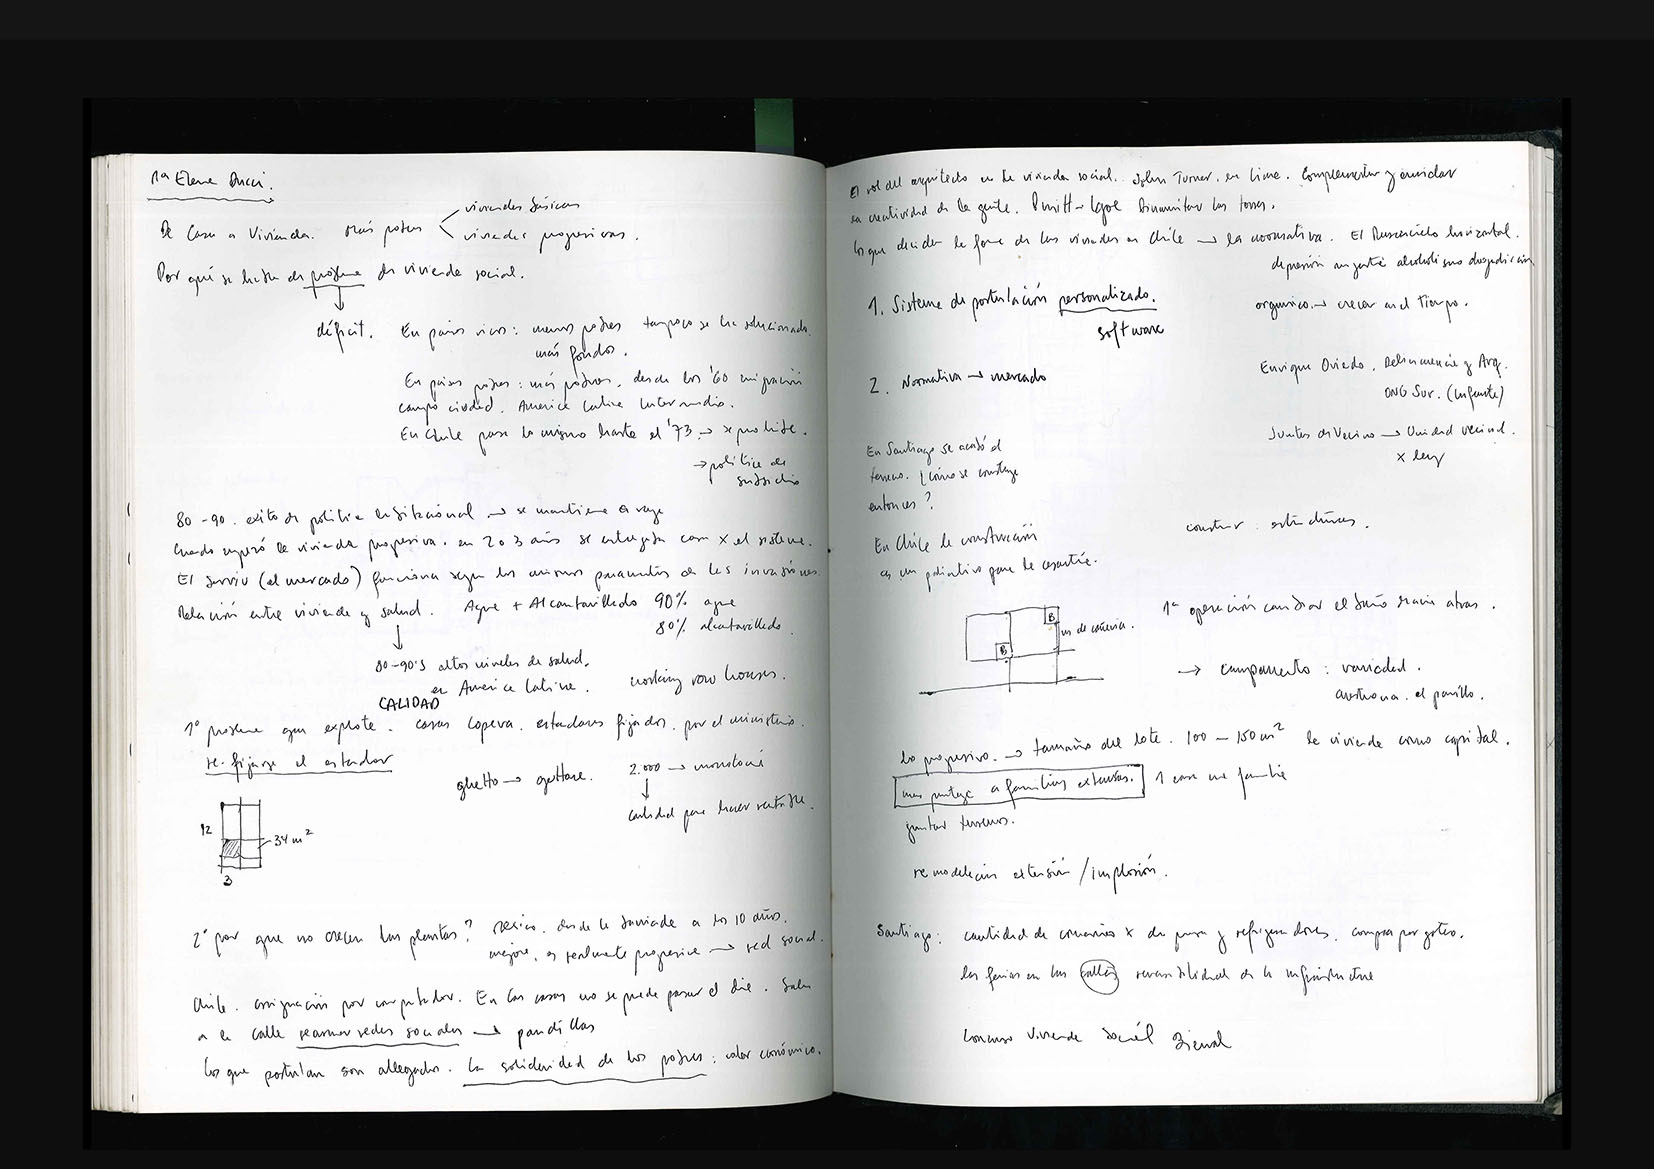 Mª Elena Ducci.
De Casa a Vivienda. Más pobres
viviendas básicas
viviendas progresivas.
Por qué se habla de problema de vivienda social.
déficit.
En países ricos: menos pobres tampoco se ha solucionado.
más fondos.
En países pobres: más pobres, desde los '60 migración
campo ciudad. América Latina intermedio.
En Chile pasa lo mismo hasta el '73 → se prohibe.
→ política de
subsidio
80-90. éxito de política habitacional → se mantiene a raya
Cuando empezó la vivienda progresiva. en 2 o 3 años se entregaba casa x el sistema.
El Serviu (el mercado) funciona según los mismos parámetros de las invasiones.
Relación entre vivienda y salud. Agua + Alcantarillado 90% agua
80% alcantarillado.
80-90's altos niveles de salud.
en América Latina.
working row houses.
CALIDAD
1º problema que explote. casas Copeva. estándares fijados por el ministerio.
re-fijarse el estándar
ghetto →
2.000 →
cantidad para hacer rentable.
12
34 m²
3
2º por que no crecen las plantas? México. desde la barriada a los 10 años.
mejora, es realmente progresiva → red social.
Chile. asignación por computador. En las casas no se puede pasar el día. Salen
a la calle rearmar redes sociales → pandillas
Los que postulan son allegados. La solidaridad de los pobres: valor económico.
El rol del arquitecto en la vivienda social. John Turner, en Lima. Complementar y
la creatividad de la gente. Pruitt-Igoe Dinamitar las torres.
Lo que decide la forma de las viviendas en Chile → la normativa. El Rascacielo horizontal.
depresión angustia alcoholismo drogadicción
1. Sistema de postulación personalizado.
software
orgánico → crecer en el tiempo.
2. Normativa → mercado
Enrique Oviedo. Delincuencia y Arq.
ONG Sur. (Infante)
Juntas de Vecino → Unidad vecinal.
x ley
En Santiago se acabó el
terreno. ¿Cómo se construye
entonces?
construir: estructuras.
En Chile la construcción
es un paliativo para la cesantía.
B
B
ms de cañería.
1ª operación cambiar el baño hacia atrás.
→ campamento: variedad.
el pasillo.
lo progresivo. → tamaño del lote. 100 – 150 m² la vivienda como capital.
a familias extensas. 1 casa una familia
juntar terrenos.
remodelación extensión / implosión.
Santiago: cantidad de x de y refrigeradores. compra por goteo.
las ferias en las calles reversibilidad de la infraestructura
Concurso Vivienda Social Bienal